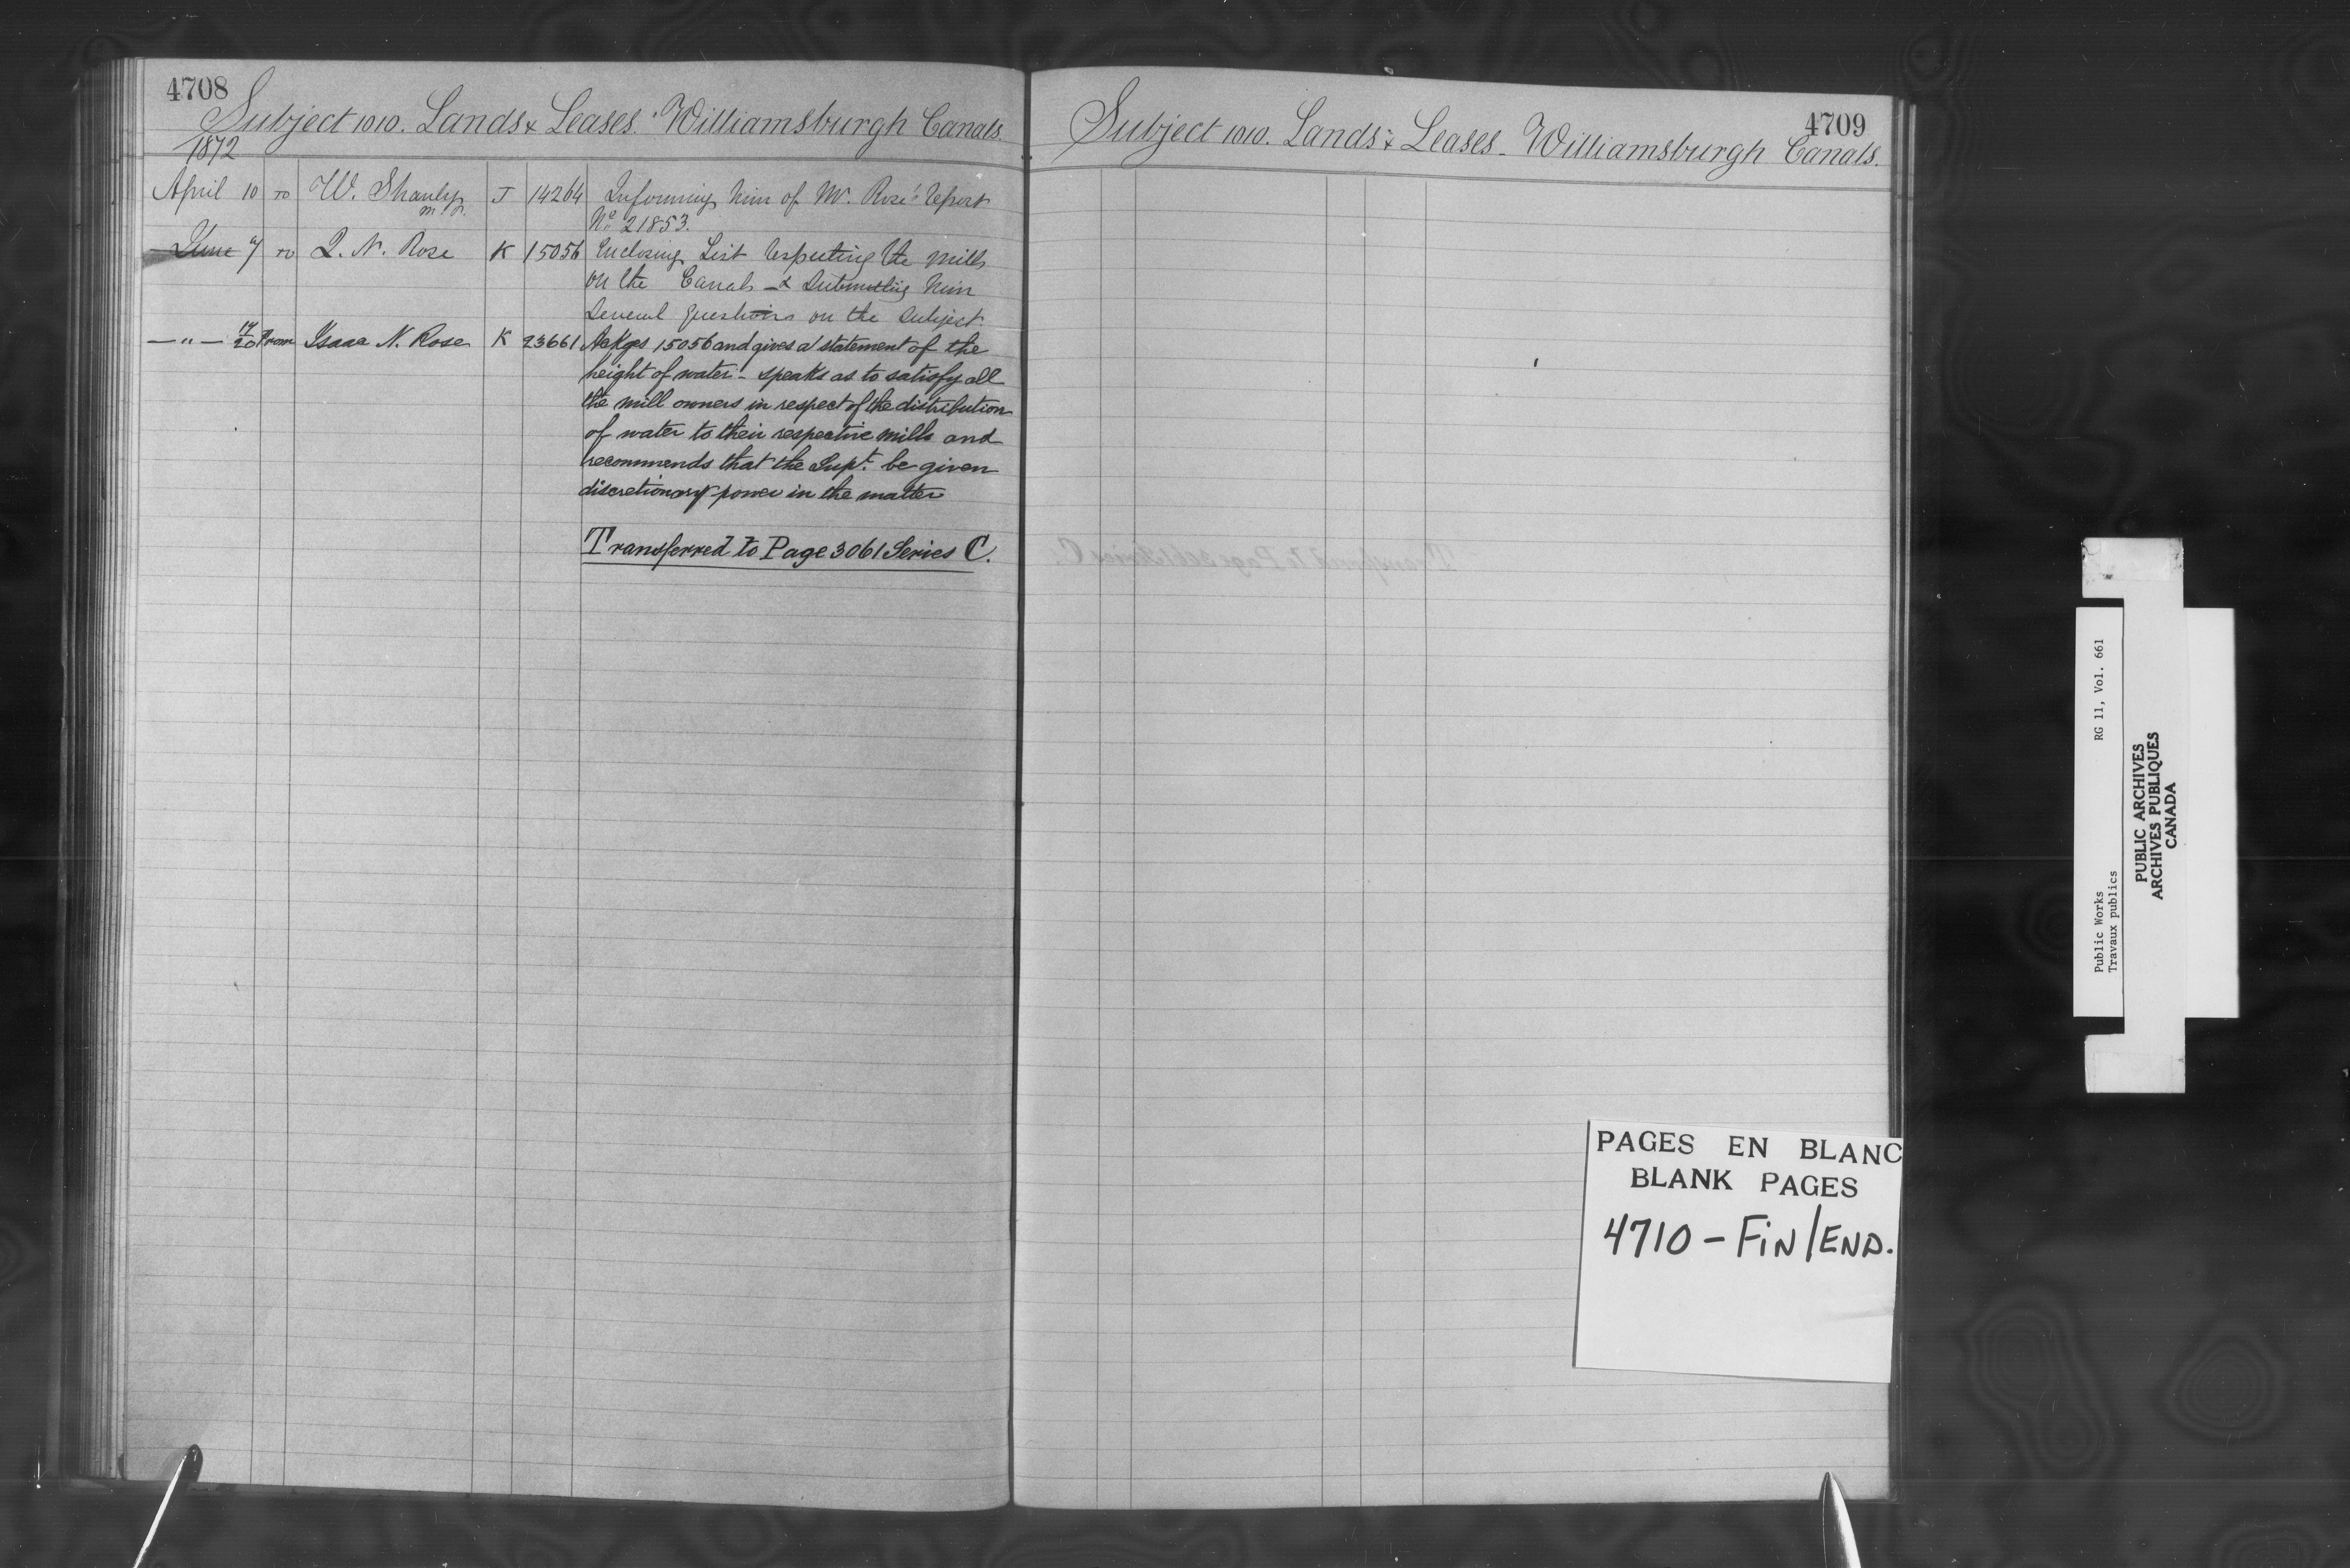 4708
Subject 1010. Lands & Leases. Williamsburgh Canals.
1872
April 10 To W. Shanly J 14264 Informing him of Mr. Rose's Report
M.P.
No 21853.
June 7 To I. N. Rose K 15056 Enclosing List respecting the mills
on the Canals & Submitting him
Several Questions on the Subject.
— " — 17/20 From Isaac N. Rose K 23661 Ackges 15056 and gives a statement of the
height of water - speaks as to satisfy all
the mill owners in respect of the distribution
of water to their respective mills and
recommends that the Supt. be given
discretionary power in the matter
Transferred to Page 3061 Series C.
4709
Subject 1010. Lands & Leases - Williamsburgh Canals.
PAGES EN BLANC
BLANK PAGES
4710 - FIN/END.
Public Works RG 11, Vol. 661
Travaux publics
PUBLIC ARCHIVES
ARCHIVES PUBLIQUES
CANADA